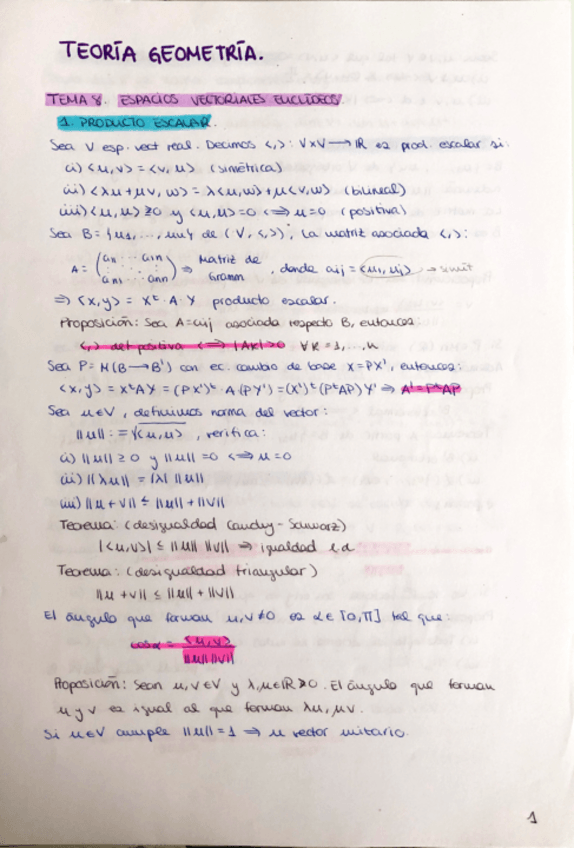 TEORÍA GEOMETRÍA.
TEMA 8. ESPACIOS VECTORIALES EUCLÍDEOS
1. PRODUCTO ESCALAR.
Sea V esp. vect real. Decimos <,>: V×V → ℝ es prod. escalar si:
i) <u,v> = <v,u> (simétrica)
ii) <λu+μv, w> = λ<u,w>+μ<v,w> (bilineal)
iii) <u,u> ≥0 y <u,u> =0 <=> u=0 (positiva)
Sea B= {u1, ..., un} de (V, <,>), La matriz asociada <,>:
A = (a11 ... a1n ⋮ ⋮ an1 ... ann) => Matriz de Gramm, donde aij = <ui, uj> → simét
=> <x,y> = Xᵗ · A · Y producto escalar.
Proposición: Sea A=aij asociada respecto B, entonces
<,> def positiva <=> |AK|>0 ∀K=1,...,n
Sea P= M(B→B') con ec. cambio de base X=PX', entonces:
<x,y> = XᵗAY = (PX')ᵗ · A (PY') = (X')ᵗ (PᵗAP) Y' => A'=PᵗAP
Sea u∈V, definimos norma del vector:
||u|| := √<u,u>, verifica:
i) ||u|| ≥ 0 y ||u|| =0 <=> u=0
ii) ||λu|| = |λ| ||u||
iii) ||u+v|| ≤ ||u|| + ||v||
Teorema: (desigualdad Cauchy-Sawarz)
|<u,v>| ≤ ||u|| ||v|| => igualdad l.d
Teorema: (desigualdad triangular)
||u+v|| ≤ ||u|| + ||v||
El ángulo que forman u,v≠0 es α∈[0,π] tal que:
cosα = <u,v> / ||u|| ||v||
Proposición: Sean u,v∈V y λ,μ∈ℝ>0. El ángulo que forman
u y v es igual al que forman λu, μv.
Si u∈V cumple ||u||=1 => u vector unitario.
1